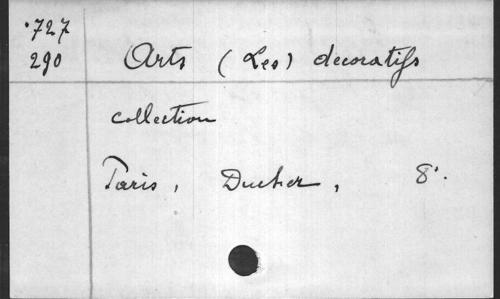 ·727
290
Arts (Les) décoratifs
collection
Paris, Ducher, 8°.